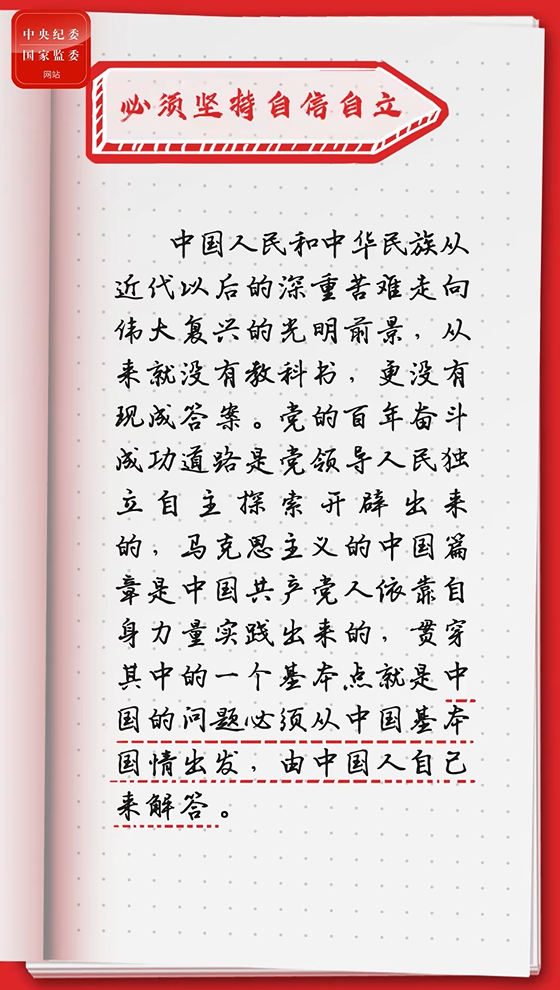 中央纪委
国家监委
网站
必须坚持自信自立
中国人民和中华民族从
近代以后的深重苦难走向
伟大复兴的光明前景，从
来就没有教科书，更没有
现成答案。党的百年奋斗
成功道路是党领导人民独
立自主探索开辟出来
的，马克思主义的中国篇
章是中国共产党人依靠自
身力量实践出来的，贯穿
其中的一个基本点就是中
国的问题必须从中国基本
国情出发，由中国人自己
来解答。